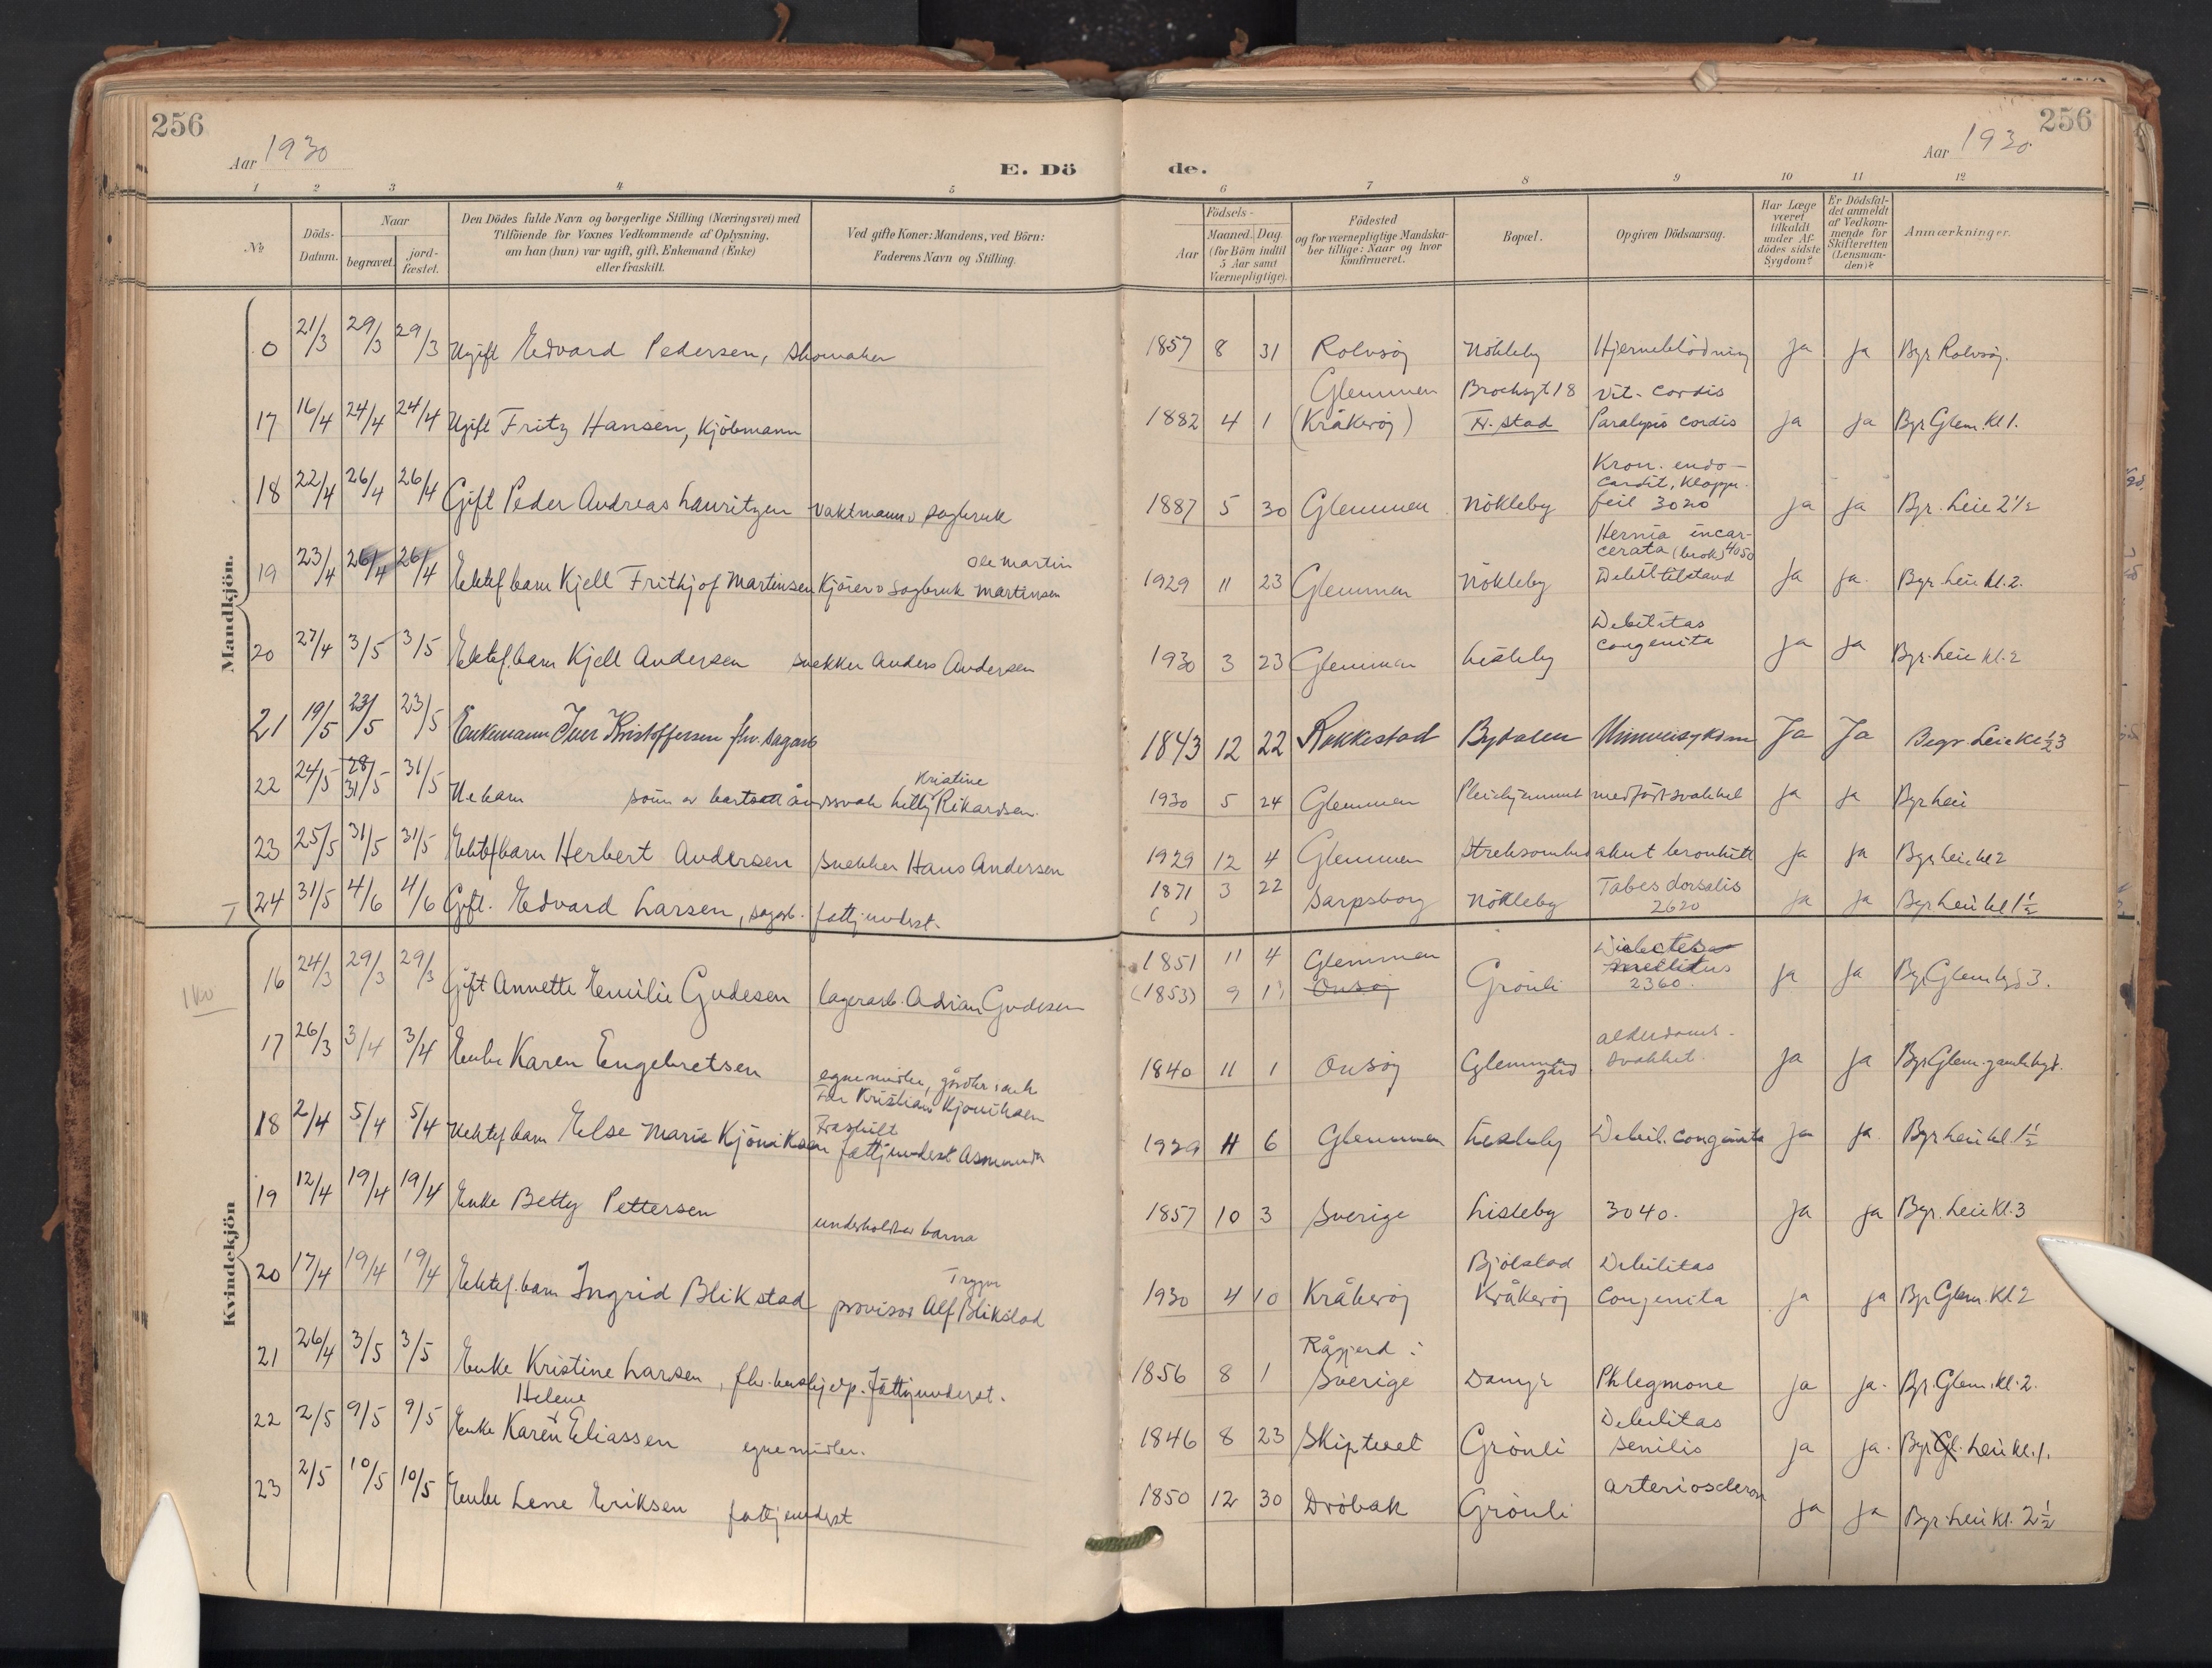 256
Aar 1930
E. Dö
de.
Aar 1930
256
1 2 3 4 5 6 7 8 9 10 11 12
№
Döds-
Datum.
Naar
begravet.
jord-
fæstet.
Den Dödes fulde Navn og borgerlige Stilling (Næringsvei) med
Tilföiende for Voxnes Vedkommende af Oplysning,
om han (hun) var ugift, gift, Enkemand (Enke)
eller fraskilt.
Ved gifte Koner: Mandens, ved Börn:
Faderens Navn og Stilling.
Födsels-
Aar
Maaned. Dag
(for Börn indtil
5 Aar samt
Værnepligtige).
Födested
og for værnepligtige Mandska-
ber tillige: Naar og hvor
konfirmeret.
Bopæl.
Opgiven Dödsaarsag.
Har Læge
været
tilkaldt
under Af-
dödes sidste
Sygdom?
Er Dödsfal-
det anmeldt
af Vedkom-
mende for
Skifteretten
(Lensman-
den)?
Anmærkninger.
Mandkjön.
0 21/3 29/3 29/3 Ugift Edvard Pedersen, skomaker 1857 8 31 Rolvsøj Nökleby Hjerneblödning ja ja Bgr Rolvsøj.
Glemmen Brochsgt 18 vit. cordis
17 16/4 24/4 24/4 Ugift Fritz Hansen, Kjöbmann 1882 4 1 (Kråkeröj) Fr. stad Paralysis cordis ja ja Bgr Glem. kl 1.
Kron. endo-
cardit, klappe-
18 22/4 26/4 26/4 Gift Peder Andreas Lauritzen vaktmann v sagbruk 1887 5 30 Glemmen Nökleby feil 3020 ja ja Bgr. Leie 2 1/2
Hernia incar-
Ole Martin cerata (brok) 4050
19 23/4 26/4 26/4 Ektef barn Kjell Frithjof Martinsen Kjörer v sagbruk Martinsen 1929 11 23 Glemmen Nökleby Debil tilstand ja ja. Bgr. Leie kl. 2.
Debilitas
20 27/4 3/5 3/5 Ektef. barn Kjell Andersen snekker Anders Andersen 1930 3 23 Glemmen Lisleby congenita ja ja Bgr. Leie kl. 2
21 19/5 23/5 23/5 Enkemann Iver Kristoffersen fhv. sagarb 1843 12 22 Rakkestad Bydalen Ja Ja Begr. Leie kl 1/2 3
28/5
Kristine
22 24/5 31/5 31/5 Ue barn sönn av bortsatt åndssvak Letty Rikardsen. 1930 5 24 Glemmen Pleiehjemmet medfödt svakhet ja ja Bgr Leie
23 25/5 31/5 31/5 Ektef barn Herbert Andersen snekker Hans Andersen 1929 12 4 Glemmen akut bronkitt ja ja Bgr Leie kl 2
24 31/5 4/6 4/6 Gift. Edvard Larsen, sagarb. fattigunderst. 1871 3 22 Sarpsborg Nökleby Tabes dorsalis ja ja Bgr Leie kl 1 1/2
( ) 2620
Kvindekjön
16 24/3 29/3 29/3 Gift Annette Emilie Gudesen lagerarb. Adrian Gudesen 1851 11 4 Glemmen Grönli Diabetes ja ja Bgr Glem 3.
(1853) 9 1) Onsöj mellitus
2360.
alderdoms-
17 26/3 3/4 3/4 Enke Karen Engebretsen 1840 11 1 Onsöj Glemmen gård svakhet. ja ja Bgr Glem. gamle
egne midler,
Far Kristian Kjöniksen
Fraskilt
18 2/4 5/4 5/4 Uektef barn Else Marie Kjöniksen fattigunderst Asmunda 1929 11 6 Glemmen Lisleby Debil. congenita ja ja. Bgr Leie kl 1 1/2
19 12/4 19/4 19/4 Enke Betty Pettersen underholdt av barna 1857 10 3 Sverige Lisleby 3040. ja ja Bgr. Leie Kl. 3
Trygve Bjölstad Debilitas
20 17/4 19/4 19/4 Ektef. barn Ingrid Blikstad provisor Alf Blikstad 1930 4 10 Kråkeröj Kråkeröj congenita ja ja Bgr Glem. kl 2
Rågjerd i
21 26/4 3/5 3/5 Enke Kristine Larsen, fhv. hushjelp. Fattigunderst. 1856 8 1 Sverige Phlegmone ja ja. Bgr. Glem. kl. 2.
Helene Debilitas
22 2/5 9/5 9/5 Enke Karen Eliassen egne midler. 1846 8 23 Skiptvet Grönli senilis ja ja. Bgr Gl. Leie kl. 1.
23 2/5 10/5 10/5 Enke Lene Eriksen fattigunderst 1850 12 30 Dröbak Grönli arteriosclerose ja ja Bgr. Leie kl. 2 1/2